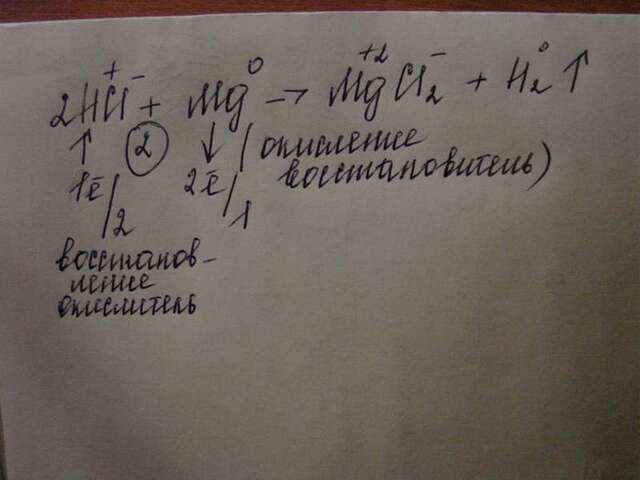 2H⁺Cl⁻ + Mg⁰ → Mg⁺²Cl₂⁻ + H₂⁰ ↑
↑ ② ↓ (окисление
1ē/2 2ē/1 восстановитель)
восстанов-
ление
окислитель